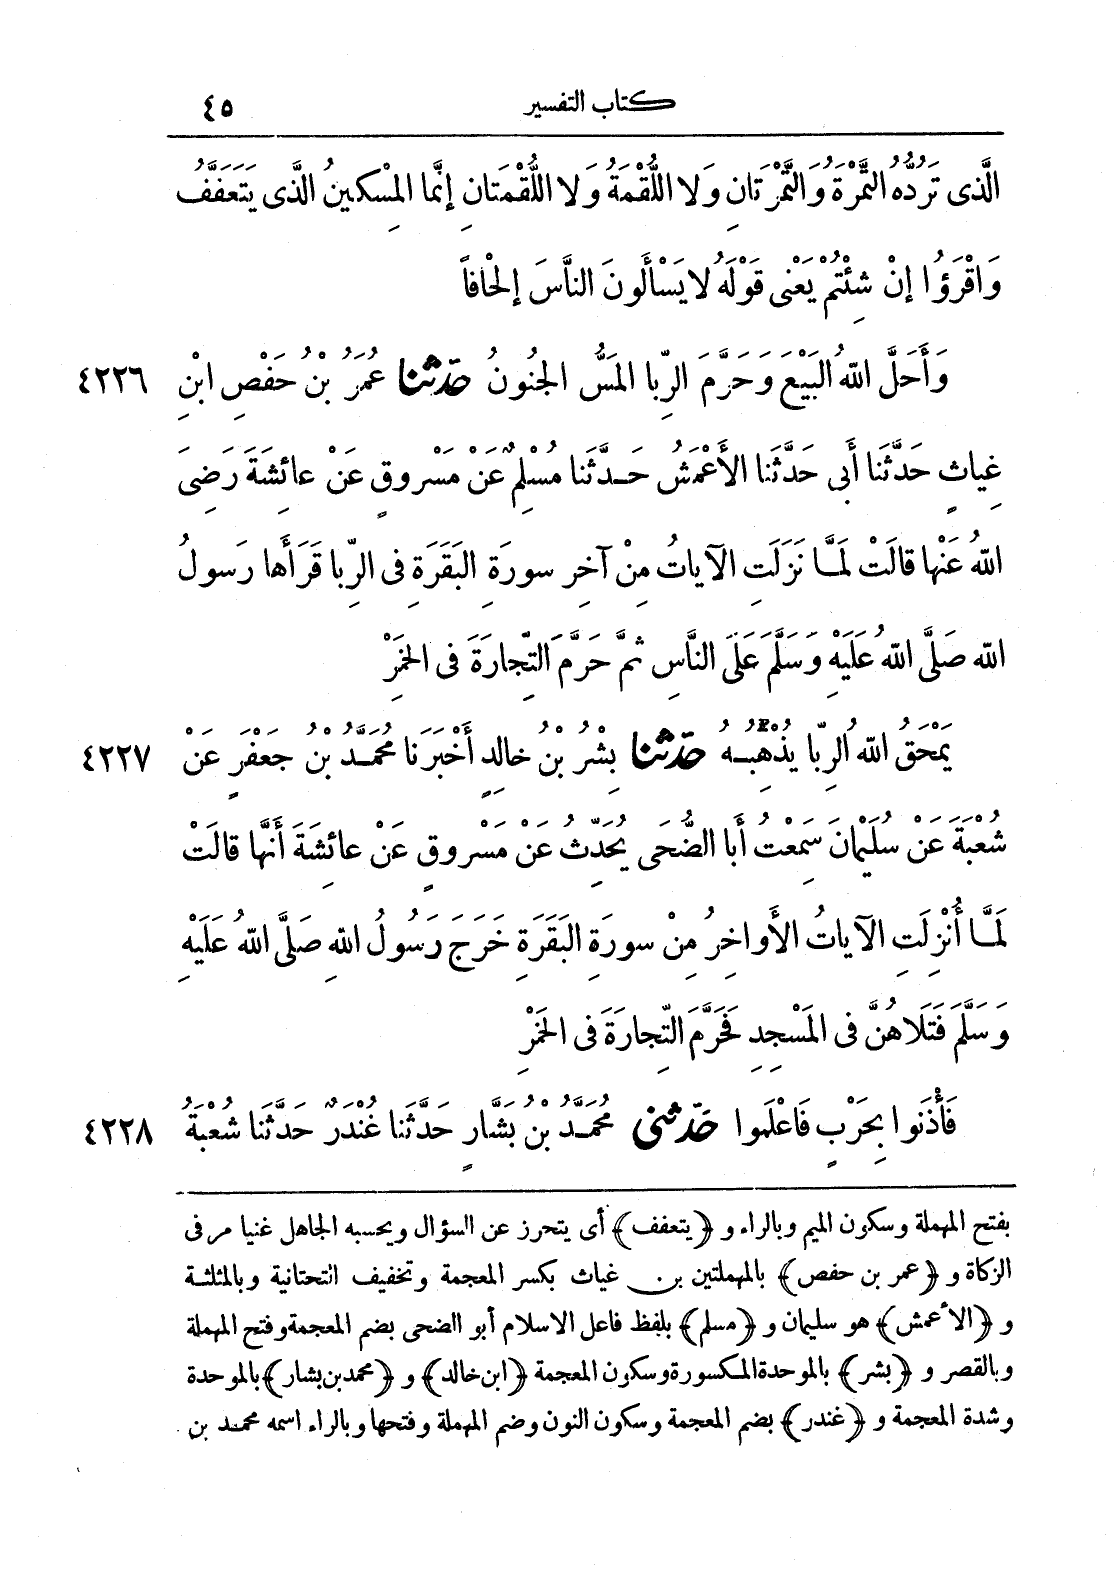 كتاب التفسير ٤٥
الَّذِى تَرُدُّهُ التَّمْرَةُ وَالتَّمْرَتَانِ وَلَا اللُّقْمَةُ وَلَا اللُّقْمَتَانِ إِنَّمَا المِسْكِينُ الَّذِى يَتَعَفَّفُ
وَاقْرَؤُا إِنْ شِئْتُمْ يَعْنِى قَوْلَهُ لَا يَسْأَلُونَ النَّاسَ إِلْحَافاً
٤٢٢٦ وَأَحَلَّ اللهُ البَيْعَ وَحَرَّمَ الرِّبا المَسُّ الجُنُونُ حَدَّثَنَا عُمَرُ بْنُ حَفْصِ ابْنِ
غِياثٍ حَدَّثَنَا أَبِى حَدَّثَنَا الأَعْمَشُ حَدَّثَنَا مُسْلِمٌ عَنْ مَسْرُوقٍ عَنْ عَائِشَةَ رَضِىَ
اللهُ عَنْهَا قَالَتْ لَمَّا نَزَلَتِ الآيَاتُ مِنْ آخِرِ سورَةِ البَقَرَةِ فِى الرِّبا قَرَأَهَا رَسولُ
اللهِ صَلَّى اللهُ عَلَيْهِ وَسَلَّمَ عَلَى النَّاسِ ثُمَّ حَرَّمَ التِّجَارَةَ فِى الخَمْرِ
٤٢٢٧ يَمْحَقُ اللهُ الرِّبا يُذْهِبُهُ حَدَّثَنَا بِشْرُ بْنُ خَالِدٍ أَخْبَرَنَا مُحَمَّدُ بْنُ جَعْفَرٍ عَنْ
شُعْبَةَ عَنْ سُلَيْمَانَ سَمِعْتُ أَبَا الضُّحَى يُحَدِّثُ عَنْ مَسْرُوقٍ عَنْ عَائِشَةَ أَنَّهَا قَالَتْ
لَمَّا أُنْزِلَتِ الآيَاتُ الأَوَاخِرُ مِنْ سورَةِ البَقَرَةِ خَرَجَ رَسُولُ اللهِ صَلَّى اللهُ عَلَيْهِ
وَسَلَّمَ فَتَلَاهُنَّ فِى المَسْجِدِ فَحَرَّمَ التِّجَارَةَ فِى الخَمْرِ
٤٢٢٨ فَأْذَنُوا بِحَرْبٍ فَاعْلَمُوا حَدَّثَنِى مُحَمَّدُ بْنُ بَشَّارٍ حَدَّثَنَا غُنْدَرٌ حَدَّثَنَا شُعْبَةُ
بفتح المهملة وسكون الميم وبالراء و ﴿يتعفف﴾ أى يتحرز عن السؤال ويحسبه الجاهل غنيا مر فى
الزكاة و ﴿عمر بن حفص﴾ بالمهملتين بن غياث بكسر المعجمة وتخفيف التحتانية وبالمثلثة
و ﴿الأعمش﴾ هو سليمان و ﴿مسلم﴾ بلفظ فاعل الاسلام أبو الضحى بضم المعجمة وفتح المهملة
وبالقصر و ﴿بشر﴾ بالموحدة المكسورة وسكون المعجمة ﴿ابن خالد﴾ و ﴿محمد بن بشار﴾ بالموحدة
وشدة المعجمة و ﴿غندر﴾ بضم المعجمة وسكون النون وضم المهملة وفتحها وبالراء اسمه محمد بن